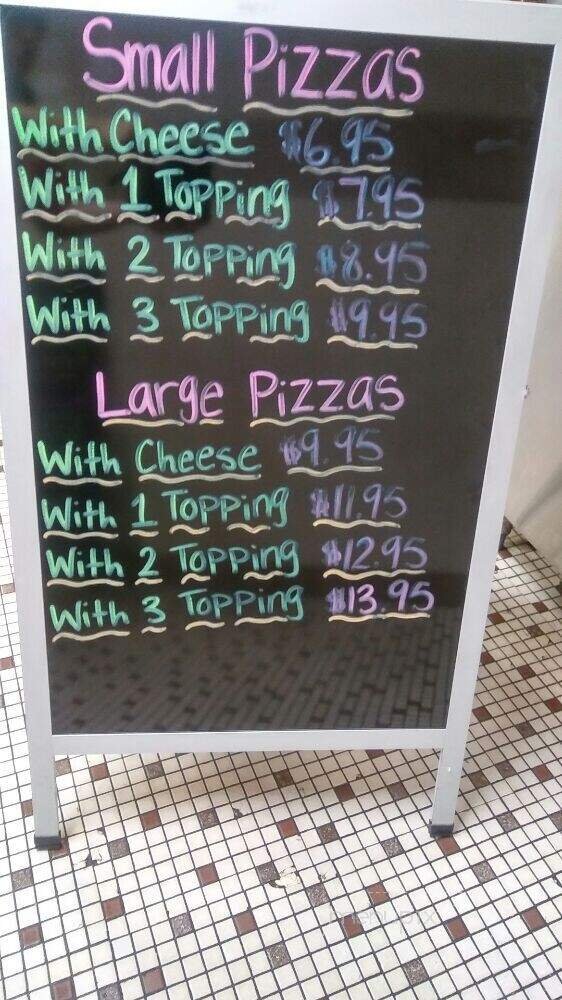 Small Pizzas
With Cheese $6.95
With 1 Topping $7.95
With 2 Topping $8.95
With 3 Topping $9.95
Large Pizzas
With Cheese $9.95
With 1 Topping $11.95
With 2 Topping $12.95
With 3 Topping $13.95